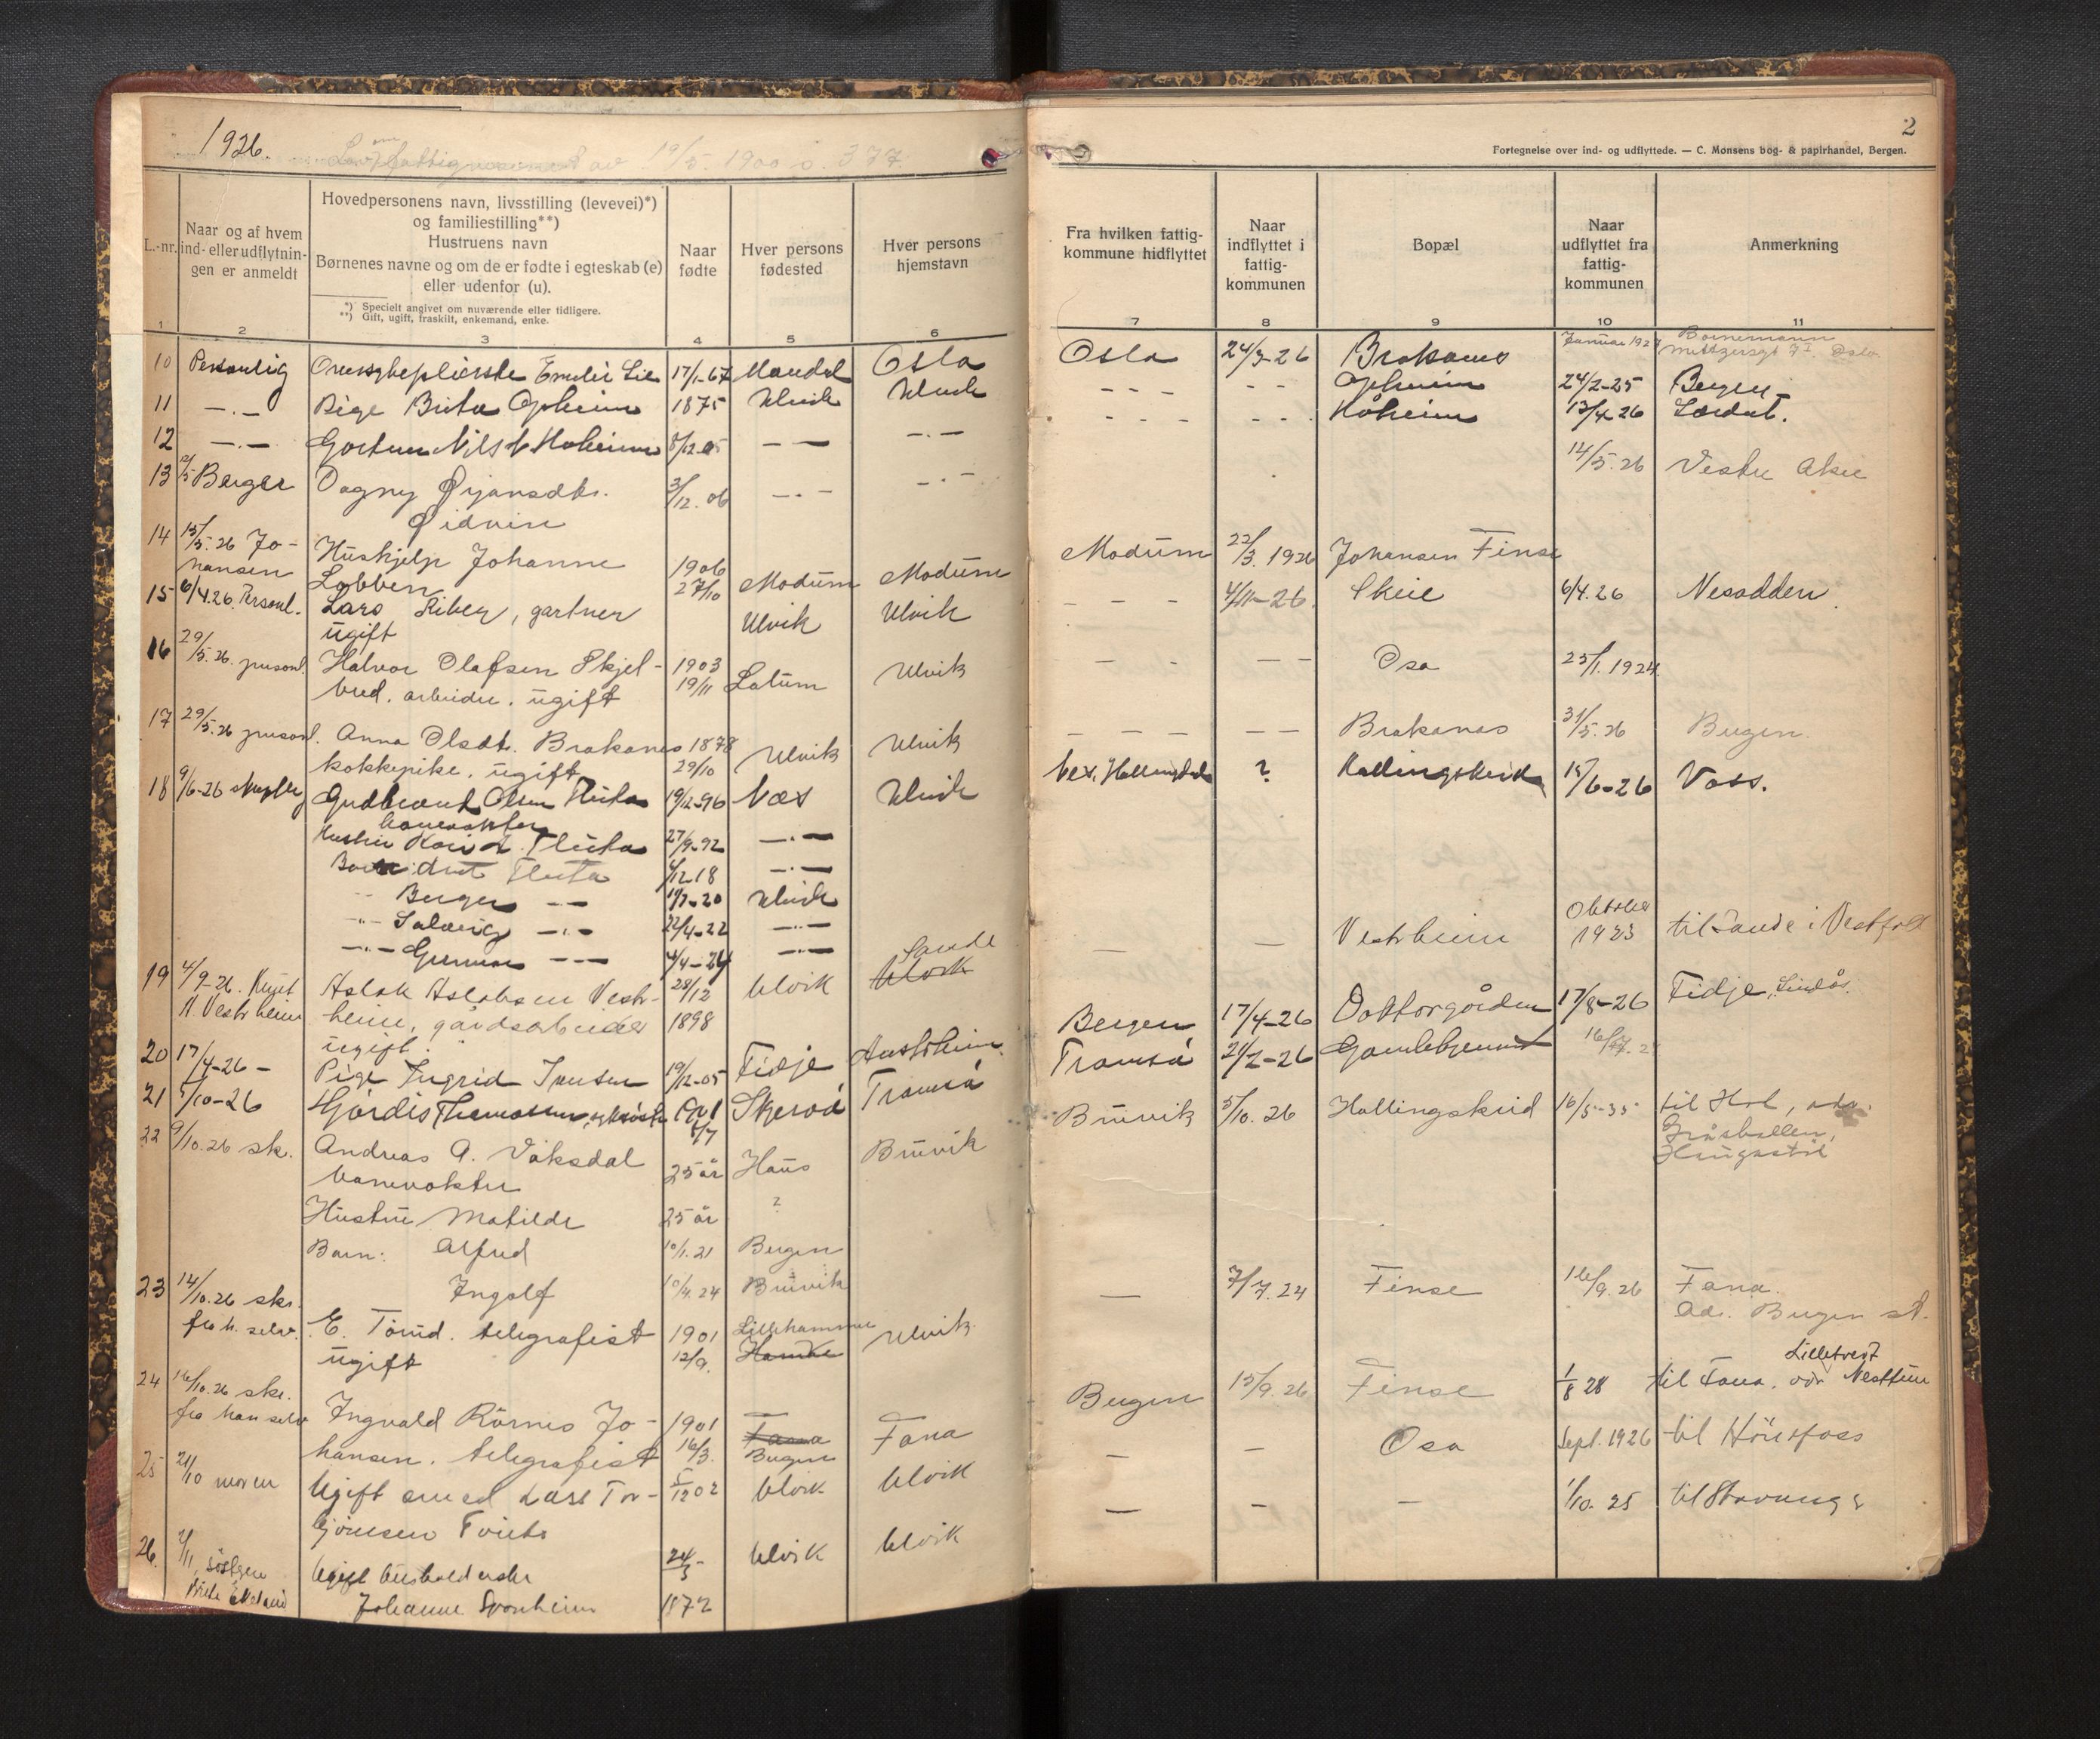 1926.
Lov om fattigvæsenet av 19/5. 1900 s. 377
L.-nr.
Naar og af hvem ind- eller udflytnin-gen er anmeldt
Hovedpersonens navn, livsstilling (levevei)*)
og familiestilling**)
Hustruens navn
Børnenes navne og om de er fødte i egteskab (e)
eller udenfor (u).
*) Specielt angivet om nuværende eller tidligere.
**) Gift, ugift, fraskilt, enkemand, enke.
Naar fødte
Hver persons fødested
Hver persons hjemstavn
1 2 3 4 5 6
10 Personlig Emelie Lie 17/1-67 Mandal Oslo
11 —.— Pige Brita Opheim 1875 Ulvik Ulvik
12 —.— Nils Håheim 8/12.05 — — —.—
13 12/5 Berger Dagny Ørjansdtr. 3/12.06 —.— —.—
Øidvin
14 15/5.26 Jo-
hansen
Huskjelp Johanne 1906
Lobben 27/10 Modum Modum
15 6/4.26. Personl. Lars Liberg, gartner Ulvik Ulvik
ugift
16 29/5.26. personl. Halvor Olafsen Skjel- 1903
bred. arbeider. ugift 19/11 Latum Ulvik
17 29/5.26 personl. Anna Olsdt. Brakanes 1878
kokkepike. ugift 29/10 Ulvik Ulvik
18 9/6-26 Gudbrand Olsen Fluta 19/12-96 Næs Ulvik
banevokter
Hustru Kari Fluta 27/9-92 —.—
Barn Fluta 4/12 18 —.—
-"- Berger —"— 19/7-20 Ulvik
-"- Solveig —"— 22/4-22 —"—
-"- Gunnar —"— 4/4-24 —"—
19 4/9-26. Knut
N. Vestrheim
Aslak Aslaksen Vestr- 28/12 Ulvik Sande
Ulvik
heim, gårdsarbeider 1898
ugift.
20 17/4-26 — Pige Ingrid Jensen 19/12-05 Fidje Austrheim
21 5/10-26 Hjördis Thomassen, 1901 Skjervö Tromsö
6/7
22 9/10.26 skr. Andreas A. Vaksdal 25 år Haus Bruvik
banevokter
Hustru Matilde 25 år ?
Barn: Alfred 10/1.21 Bergen
Ingolf 10/4.24 Bruvik
23 14/10.26 skr.
fra h. selv.
E. Tørud. telegrafist 1901 Lillehammer Ulvik
ugift 12/9. Hamar
24 16/10.26 skr.
fra han selv
Ingvald Rörnes Jo- 1901 Fana Fana
hansen. telegrafist 16/3. Bergen
25 21/10 moren Ugift smed Lars Tor- 5/12 02 Ulvik Ulvik
björnsen Tveito
26. 2/11 søsteren
Brita Ekeland
Ugift husholderske 24/3- Ulvik Ulvik
Johanne Sponheim 1872
2
Fortegnelse over ind- og udflyttede. — C. Monsens bog- & papirhandel, Bergen.
Fra hvilken fattig-kommune hidflyttet
Naar indflyttet i fattig-kommunen
Bopæl
Naar udflyttet fra fattig-kommunen
Anmerkning
7 8 9 10 11
Oslo 24/3-26 Brakanes Januar 1927 Oslo.
— — — — — Opheim 24/2-25 Bergen
— — — — — Håheim 13/4 26 Lærdal.
14/5.26 Vestre Aker
Modum 22/3.1926 Johansen Finse
— — — 4/11-26. Skeie 6/4.26 Nesodden.
— — — — Osa 25/1.1924.
— — — — — Brakanes 31/5.26 Bergen.
Nes, Hallingdal ? Hallingskeid 15/6-26 Voss.
— — Vestrheim Oktober
1923 til Sande i Vestfold
Bergen 17/4-26 Doktorgården 17/8-26 Fidje, Lindås.
Tromsö 24/2-26 Gamlehjemmet
Bruvik 5/10.26 Hallingskeid 16/5-35 til Hol, adr.
Haugastöl
— 7/7.24 Finse 16/9.26 Fana.
Adr. Bergen st.
Bergen 15/9.26 Finse 1/8 28 til Fana. adr Nesttun
Lilletveit
— — Osa Sept. 1926 til Hönefoss
— — — 1/10. 25 til Stavanger